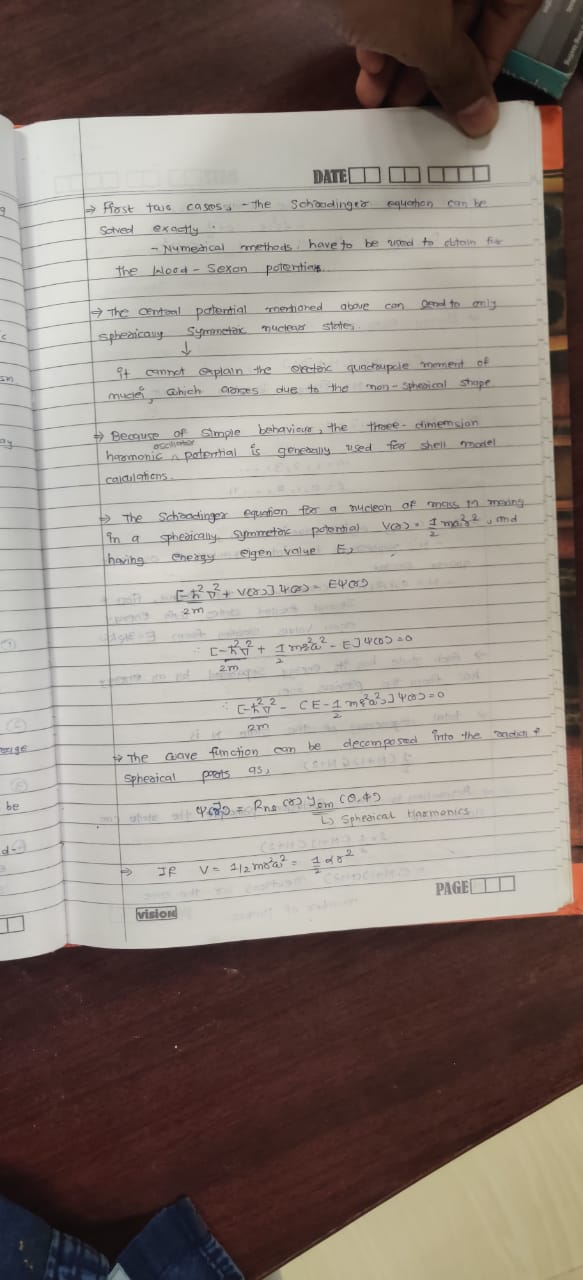 DATE
⇒ First two cases, - the Schoodinger equation can be
solved exactly.
- Numerical methods have to be used to obtain for
the Wood-Sexon potential.
⇒ The central potential mentioned above can lead to only
spherically symmetric nuclear states.
↓
It cannot explain the electric quadrupole moment of
nuclei, which arises due to the non-spherical shape
⇒ Because of simple behaviour, the three-dimension
harmonic oscillator potential is generally used for shell model
calculations.
⇒ The Schoodinger equation for a nucleon of mass m moving
in a spherically symmetric potential V(r) = 1/2 mω²r², and
having energy eigen value E,
[-ħ²∇²/2m + V(r)] ψ(r) = Eψ(r)
∴ [-ħ²∇²/2m + 1/2 mr²ω² - E] ψ(r) = 0
∴ [-ħ²∇²/2m - (E - 1/2 mr²ω²)] ψ(r) = 0
⇒ The wave function can be decomposed into the radial &
spherical parts as,
ψ(r) = Rnl (r) Ylm (θ,φ)
↳ Spherical Harmonics
⇒ If V = 1/2 mr²ω² = 1/2 αr²
PAGE
vision
be